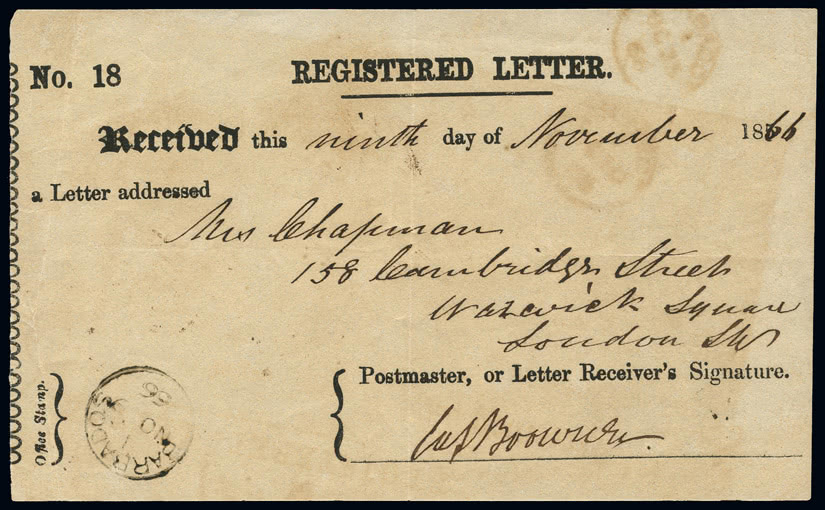 No. 18
REGISTERED LETTER.
Received this ninth day of November 1866
a Letter addressed
Mrs Chapman
158 Cambridge Street
Warwick Square
London SW
Postmaster, or Letter Receiver's Signature.
Office Stamp.
BARBADOS
NO
66